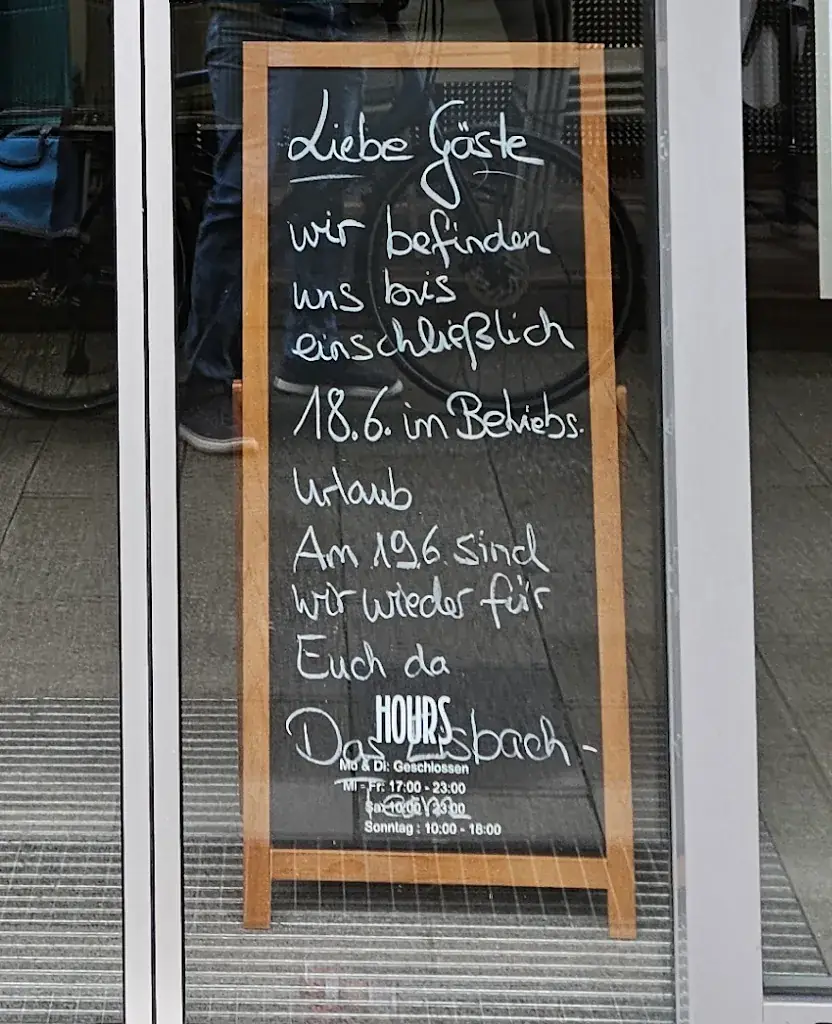 Liebe Gäste
wir befinden
uns bis
einschließlich
18.6. im Betriebs.
Urlaub
Am 19.6. sind
wir wieder für
Euch da
HOURS
Das Eisbach-
Mo & Di: Geschlossen
Mi - Fr: 17:00 - 23:00
Team
Sa: 10:00 - 23:00
Sonntag : 10:00 - 18:00